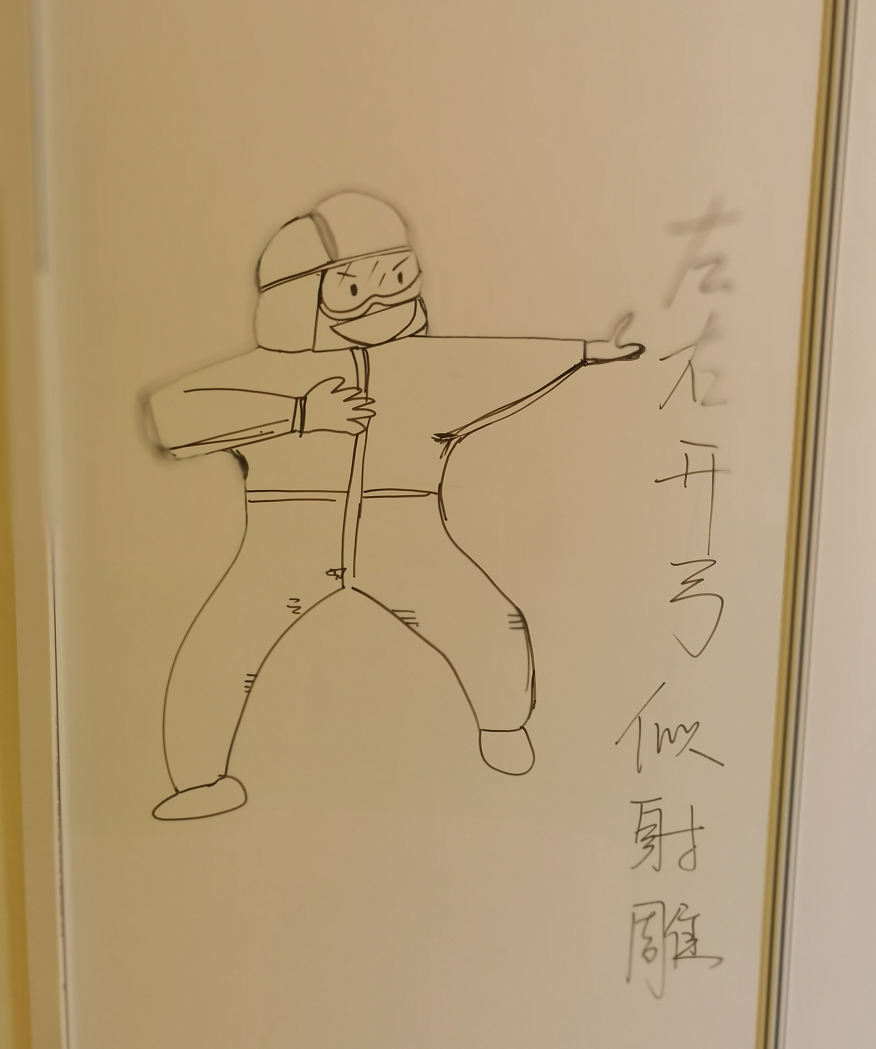 左右开弓似射雕